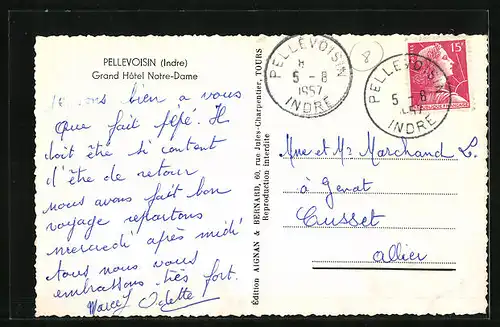 PELLEVOISIN (Indre)
Grand Hôtel Notre-Dame
bien a vous
que fait pépé. Il
doit être si content
d'être de retour
nous avons fait bon
voyage repartons
mercredi après midi
tous nous vous
embrassons très fort.
Marcel Odette
Edition AIGNAN & BERNARD, 60, rue Jules-Charpentier, TOURS
Reproduction interdite
PELLEVOISIN
8
5 - 8
1957
INDRE
8
15F
PELLEVOISIN
5 - 8
INDRE
Mme et Mr Marchand L.
à Genat
Cusset
Allier